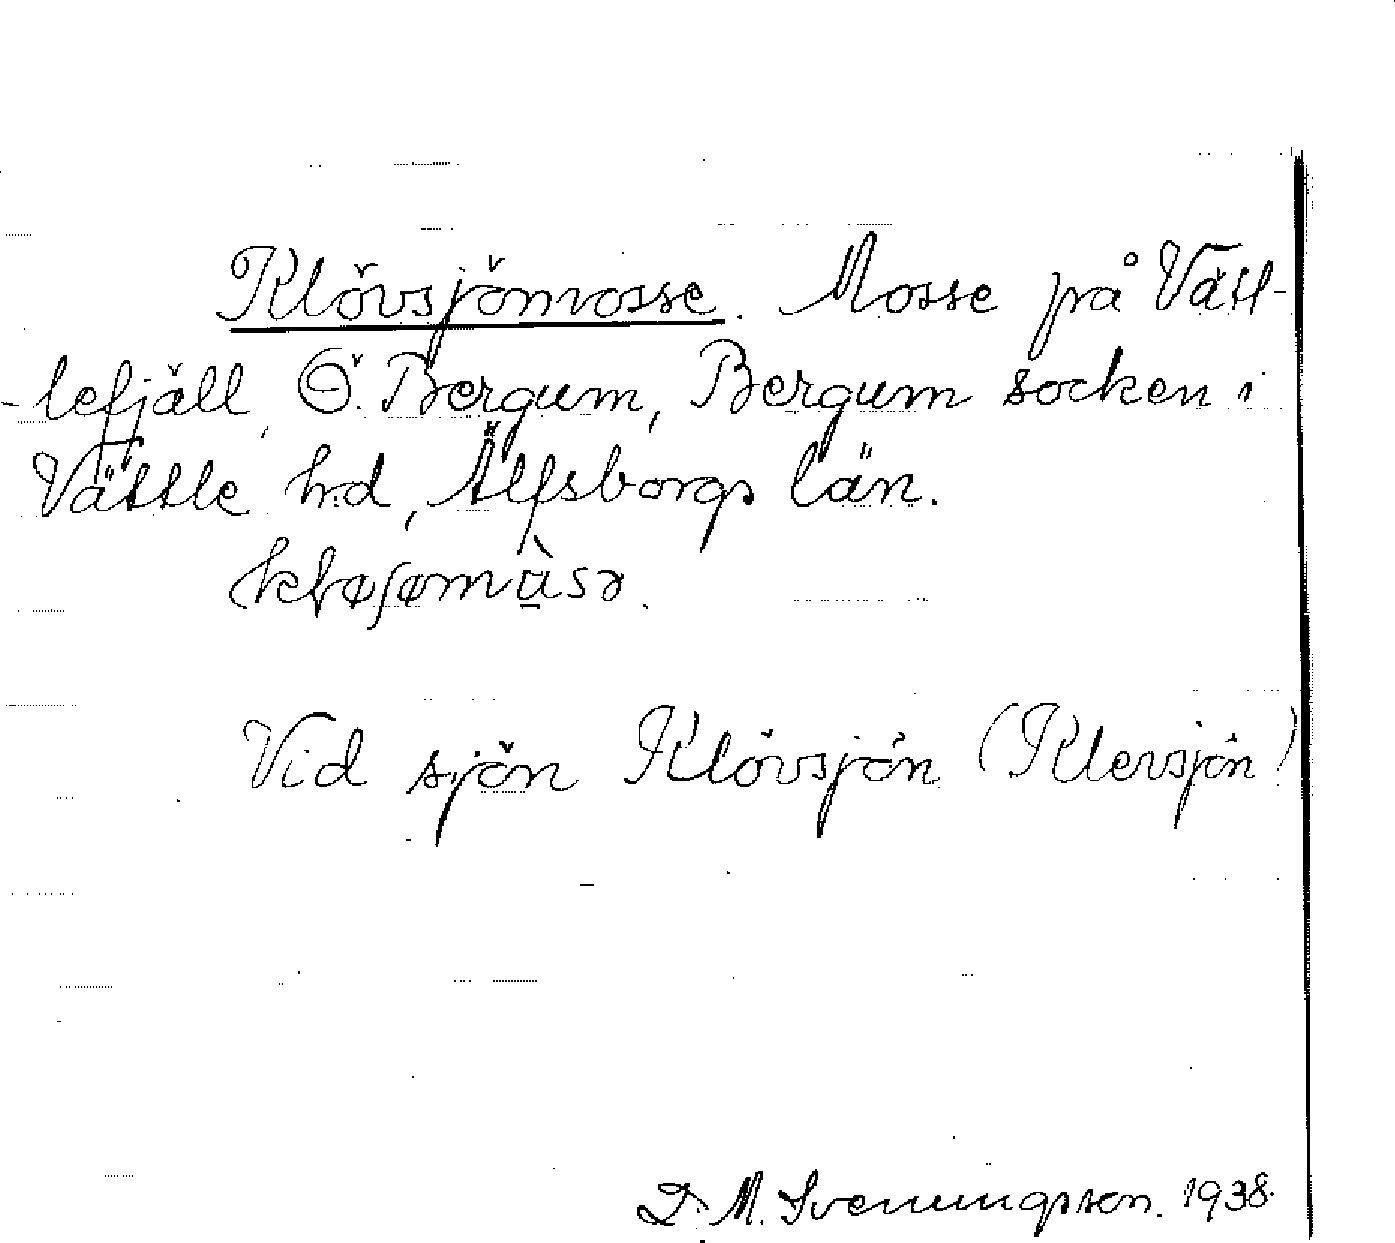 Klövsjömosse. Mosse på Vätt-
-lefjäll, Ö. Bergum, Bergum socken i
Vättle hd, Älfsborgs län.
Vid sjön Klövsjön (Klevsjön)
D. M. Svenningsson. 1938.